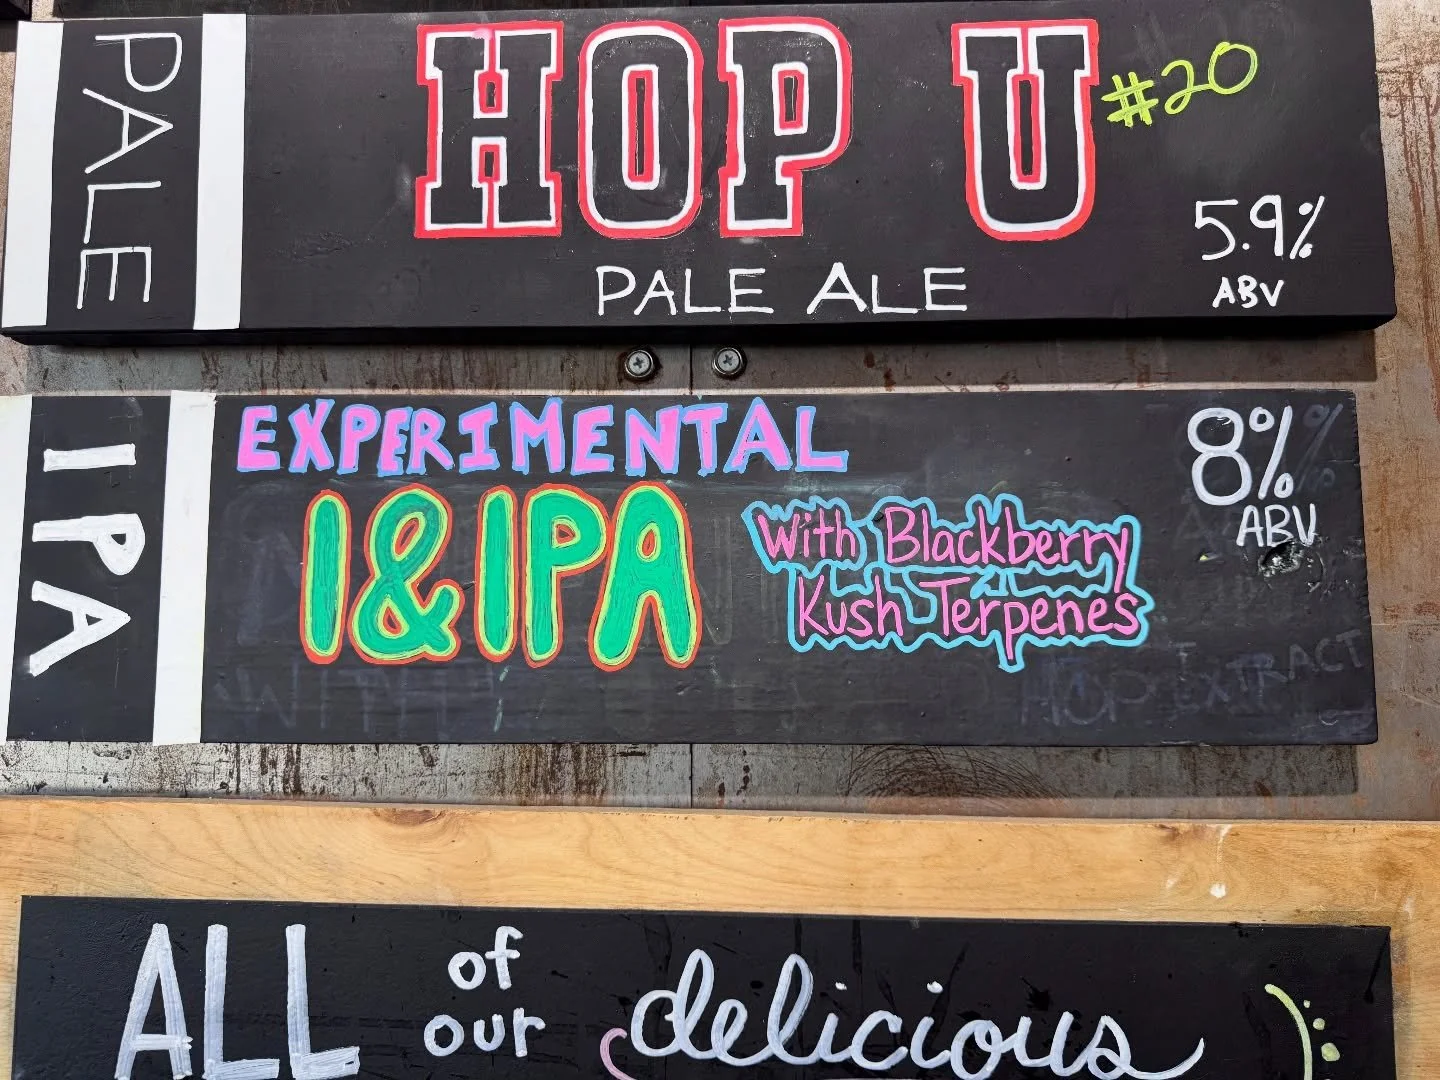 PALE
HOP U #20
5.9%
ABV
PALE ALE
IPA
EXPERIMENTAL
I&IPA
With Blackberry
Kush Terpenes
8%
ABV
WITH
HOP EXTRACT
ALL of our delicious